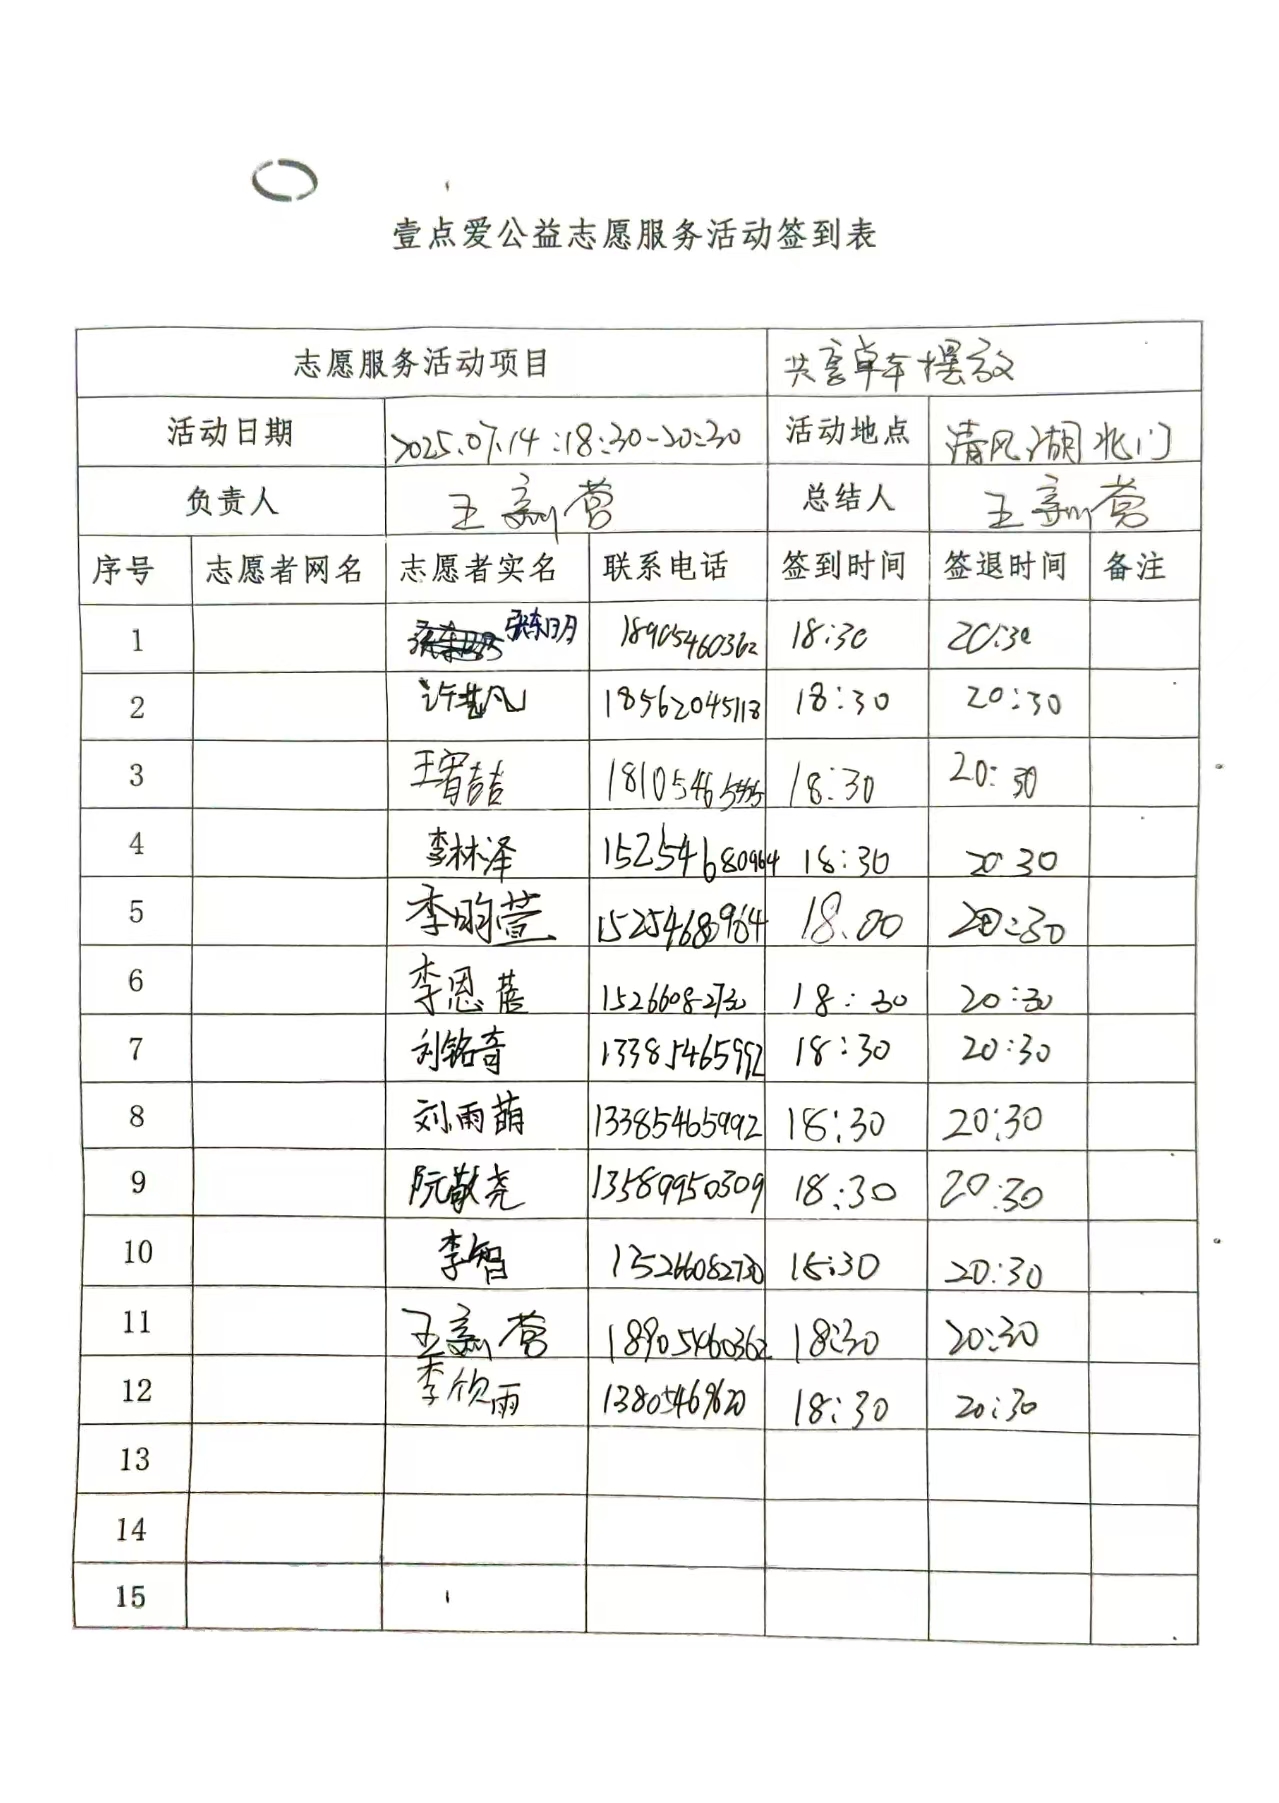 壹点爱公益志愿服务活动签到表
志愿服务活动项目 共享单车摆放
活动日期 2025.07.14:18:30-20:30 活动地点 清风湖北门
负责人 王新营 总结人 王新营
序号 志愿者网名 志愿者实名 联系电话 签到时间 签退时间 备注
1 张东明 18905460362 18:30 20:30
2 许艺凡 18562045118 18:30 20:30
3 王宥喆 18:30 20:30
4 李林泽 15254680964 18:30 20 30
5 李昀萱 15254680964 18.00 20:30
6 李恩蓓 15266082730 18:30 20:30
7 刘铭音 13385465992 18:30 20:30
8 刘雨萌 13385465992 18:30 20:30
9 阮敬尧 13589950309 18:30 20:30
10 李智 20:30
11 王新营 18905460362 18:30 20:30
12 李欣雨 18:30 20:30
13
14
15